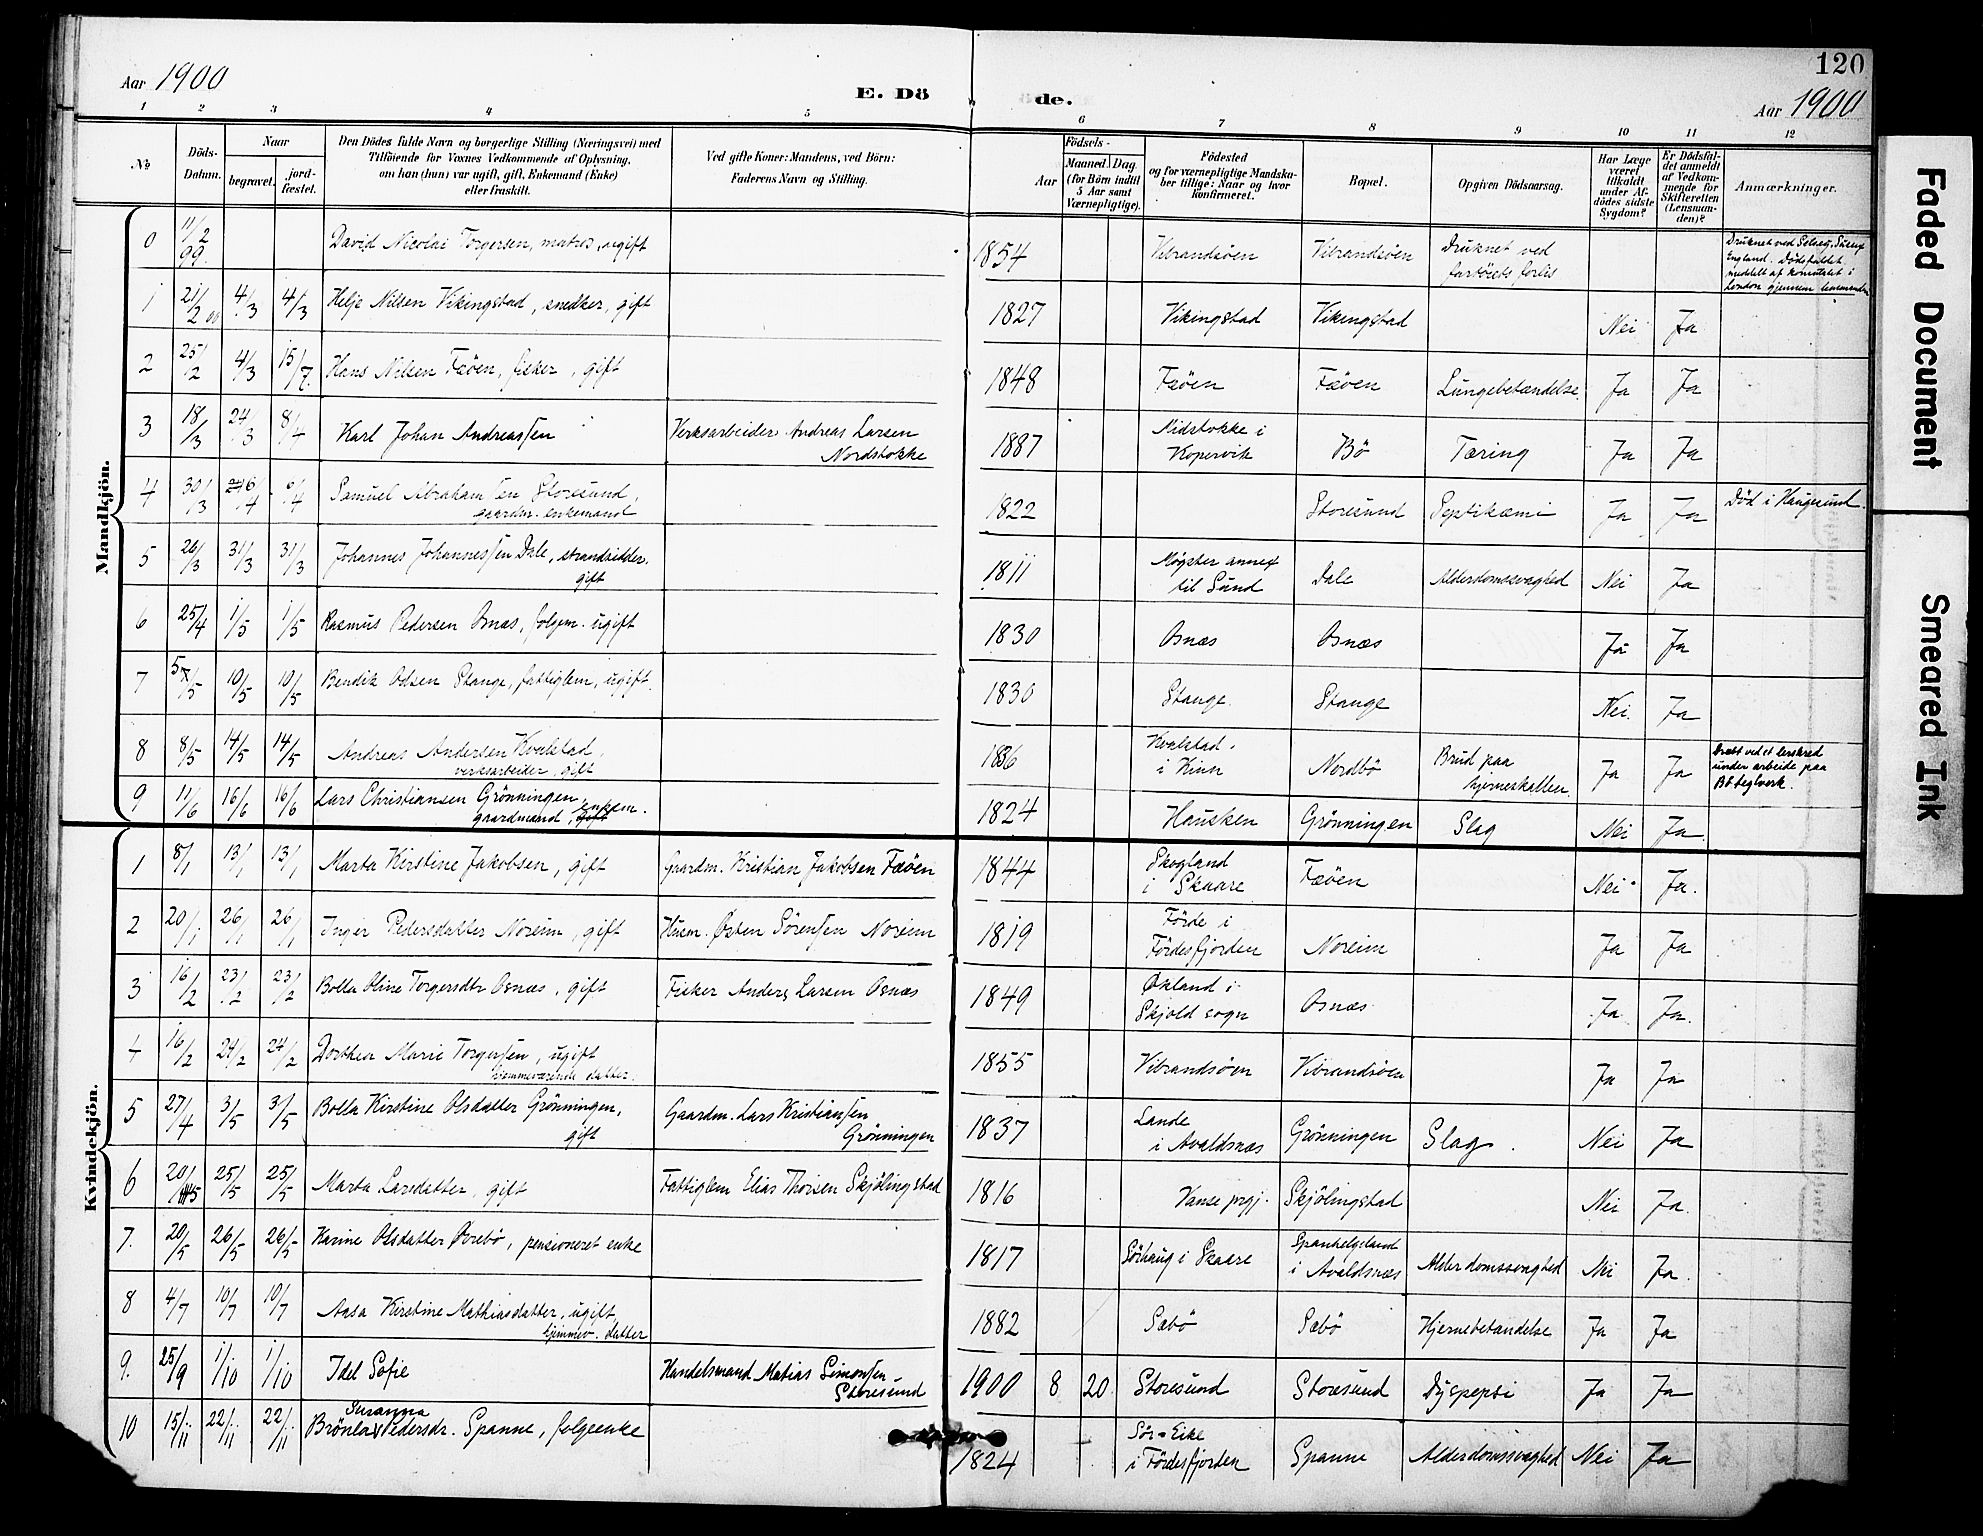 120
Aar 1900
E. Döde.
Aar 1900
1 2 3 4 5 6 7 8 9 10 11 12
No
Döds-Datum.
Naar
begravet.
jord-fæstet.
Den Dödes fulde Navn og borgerlige Stilling (Næringsvei) med
Tilföiende for Voxnes Vedkommende af Oplysning,
om han (hun) var ugift, gift, Enkemand (Enke)
eller fraskilt.
Ved gifte Koner: Mandens, ved Börn:
Faderens Navn og Stilling.
Födsels-
Aar
Maaned. Dag
(for Börn indtil
5 Aar samt
Værnepligtige).
Födested
og for værnepligtige Mandska-
ber tillige: Naar og hvor
konfirmeret.
Bopæl.
Opgiven Dödsaarsag.
Har Læge
været
tilkaldt
under Af-
dödes sidste
Sygdom?
Er Dödsfal-
det anmeldt
af Vedkom-
mende for
Skifteretten
(Lensman-
den)?
Anmærkninger.
Mandkjön.
0 11/2 99. David Nicolai Torgersen, matros, ugift 1854 Vibrandsöen Vibrandsöen Druknet ved
fartöiets forlis
Druknet ved Selsey, Susex
England. Dödsfaldet
meddelt af konsulatet i
London gjennem lensmanden
1 21/2 00 4/3 4/3 Helje Nilsen Vikingstad, snedker, gift 1827 Vikingstad Vikingstad Nei Ja
2 25/2 4/3 15/7. Hans Nilsen Fæöen, fisker, gift 1848 Fæöen Fæöen Lungebetændelse. Ja Ja
3 18/3 24/3 8/4 Karl Johan Andreassen Verksarbeider Andreas Larsen
Nordstokke
1887 Nidstokke i
Kopervik Bö Tæring Ja Ja
4 30/3 6/4 6/4 Samuel Abrahamsen Storesund,
gaardm. enkemand
1822 Storesund Septikæmi Ja Ja Död i Haugesund.
5 26/3 31/3 31/3 Johannes Johannessen Dale, strandsidder.
gift
1811 Mögster annex
til Sund Dale Alderdomssvaghed Nei Ja
6 25/4 1/5 1/5 Rasmus Pedersen Osnæs, folgem. ugift 1830 Osnæs Osnæs Ja Ja
7 5/5 10/5 10/5 Bendik Olsen Stange, fattiglem, ugift. 1830 Stange Stange Nei. Ja
8 8/5 14/5 14/5 Andreas Andersen Kvalstad,
verksarbeider, gift
1836 Kvalstad
i Kinn Nordbö Brud paa
hjerneskallen. Ja Ja
Dræbt ved et lerskred
under arbeide paa
Bö teglverk.
9 11/6 16/6 16/6 Lars Christiansen Grönningen
gaardmand, enkem.
1824 Hausken Grönningen Slag Nei Ja.
Kvindekjön.
1 8/1 13/1 13/1 Marta Kirstine Jakobsen, gift Gaardm. Kristian Jakobsen Fæöen 1844 Skogland
i Skaare Fæöen Nei Ja.
2 20/1 26/1 26/1 Inger Pedersdatter Noreim, gift Husm. Østen Sörensen Noreim 1819 Förde i
Fördesfjorden Noreim Ja Ja
3 16/2 23/2 23/2 Bolla Oline Torgersdtr Osnæs, gift Fisker Anders Larsen Osnæs 1849 Øxland i
Skjold sogn Osnæs Ja Ja.
4 16/2 24/2 24/2 Dorthea Marie Torgersen, ugift
hjemmeværende datter.
1855 Vibrandsöen Vibrandsöen Ja Ja
5 27/4 3/5 3/5 Bolla Kirstine Olsdatter Grönningen,
gift
Gaardm. Lars Kristiansen
Grönningen
1837 Lande
i Avaldsnæs Grönningen Slag. Nei Ja
6 20/5 25/5 25/5 Marta Larsdatter, gift Fattiglem Elias Thorsen Skjölingstad 1816 Vanse prgj. Skjölingstad Nei Ja.
7. 20/5 26/5 26/5 Karine Olsdatter Övrebö, pensioneret enke 1817 Sörhaug i Skaare Spanhelgeland
i Avaldsnæs Alderdomssvaghed Nei Ja.
8 4/7 10/7 10/7 Aasa Kirstine Mathiasdatter, ugift,
hjemmev. datter
1882 Sæbö Sæbö Hjernebetændelse Ja Ja
9. 25/9 1/10 1/10 Idel Sofie Handelsmand Matias Simonsen
Storesund
1900 8 20 Storesund Storesund Dyspepsi Ja Ja
10 15/11 22/11 22/11 Brönla Susanna Pedersdr. Spanne, folgeenke 1824 Sör-Eike
i Fördesfjorden Spanne Alderdomssvaghed Nei Ja
Faded Document
Smeared Ink